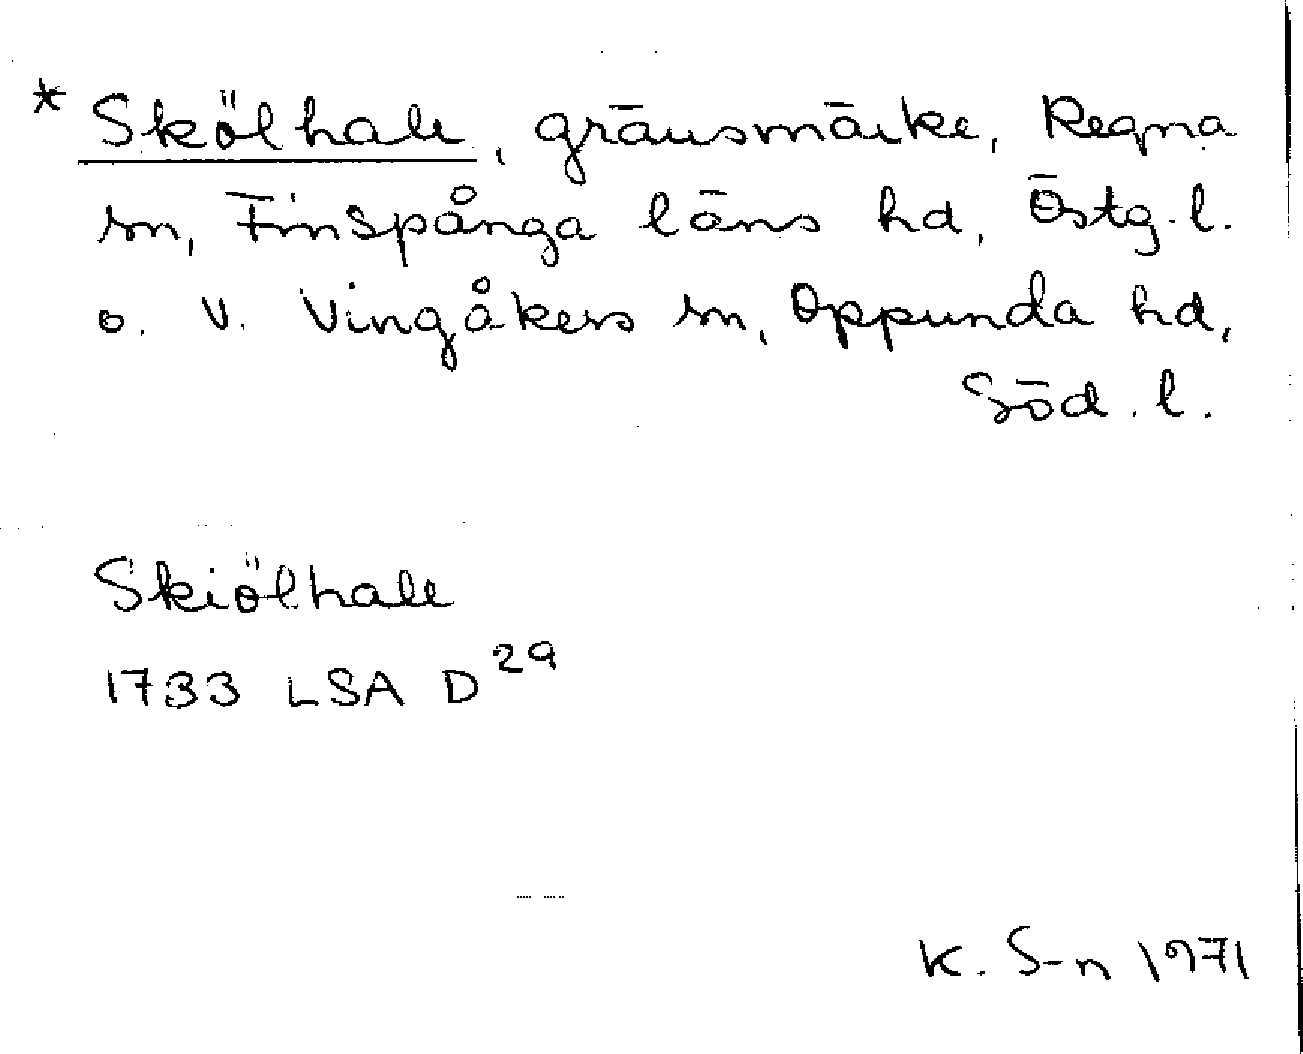 * Skölhall, gränsmärke, Regna
sn, Finspånga läns hd, Östg.l.
o. V. Vingåkers sn, Oppunda hd,
Söd.l.
Skiölhall
1733 LSA D 29
K. S-n 1971